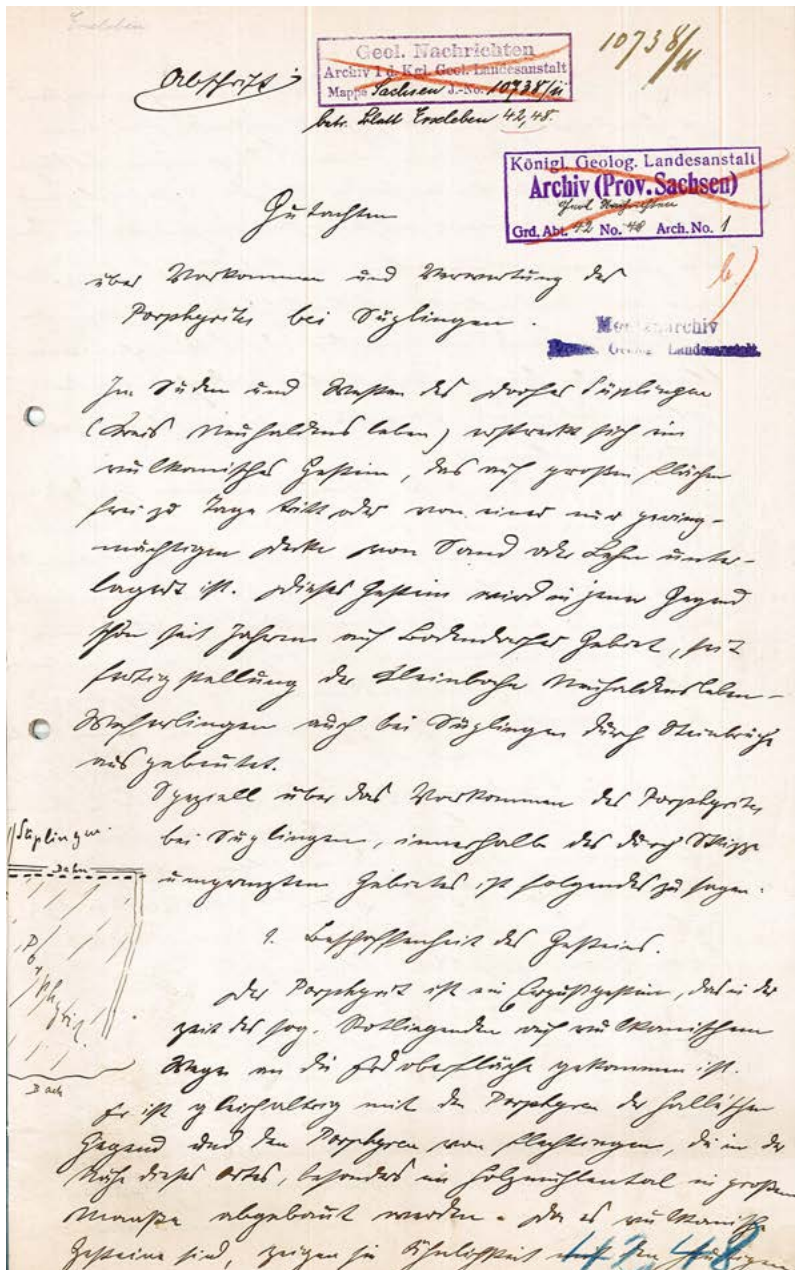 Erxleben
Abschrift
Geol. Nachrichten
Archiv I d. Kgl. Geol. Landesanstalt
Mappe Sachsen J.-No. 10738/II
betr. Blatt Erxleben 42,48.
10738/II
Königl. Geolog. Landesanstalt
Archiv (Prov. Sachsen)
Geol. Nachrichten
Grd. Abt. 42 No. 48 Arch. No. 1
Gutachten
über Vorkommen und Verwertung des
Porphyrits bei Süplingen.
b.)
archiv
Geolog. Landesanstalt.
Im Süden und Westen des Dorfes Süplingen
(Kreis Neuhaldensleben) erstreckt sich ein
vulkanisches Gestein, das auf großen Flächen
frei zu Tage tritt oder von einer nur gering-
mächtigen Decke von Sand oder Lehm unter-
lagert ist. Dieses Gestein wird in jener Gegend
schon seit Jahren auf Bodendorfer Gebiet, seit
Fertigstellung der Kleinbahn Neuhaldensleben-
Weferlingen auch bei Süplingen durch Steinbrüche
ausgebeutet.
Speziell über das Vorkommen des Porphyrites
bei Süplingen, innerhalb des durch Skizze
umgrenzten Gebietes ist folgendes zu sagen.
Süplingen.
Bahn
Porphyrit
Bach
1. Beschaffenheit des Gesteins.
Der Porphyrit ist ein Ergußgestein, das in der
Zeit des sog. Rotliegenden auf vulkanischem
Wege an die Erdoberfläche gekommen ist.
Er ist gleichaltrig mit den Porphyren der Hallischen
Gegend und den Porphyren von Flechtingen, die in der
Nähe dieses Ortes, besonders im Holzmühlental in großem
Maaße abgebaut werden. Da es vulkanische
Gesteine sind, zeigen sie Ähnlichkeit mit den
42,48